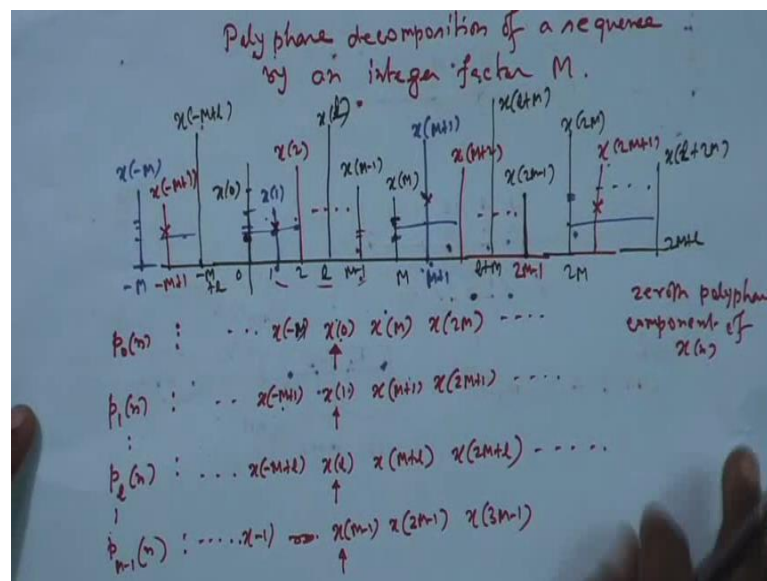 Polyphase decomposition of a sequence
by an integer factor M.
x(-M) x(-M+1) x(-M+l) x(0) x(1) x(2) x(l) x(M-1) x(M) x(M+1) x(M+2) x(l+M) x(2M-1) x(2M) x(2M+1) x(l+2M)
-M -M+1 -M+l 0 1 2 l M-1 M M+1 l+M 2M-1 2M 2M+l
zeroth polyphase
component of
x(n)
p₀(n) : ... x(-M) x(0) x(M) x(2M) ....
p₁(n) : .. x(-M+1) x(1) x(M+1) x(2M+1) ....
:
pₗ(n) : ... x(-M+l) x(l) x(M+l) x(2M+l) .....
pₘ₋₁(n) : ..... x-1) x(M-1) x(2M-1) x(3M-1)